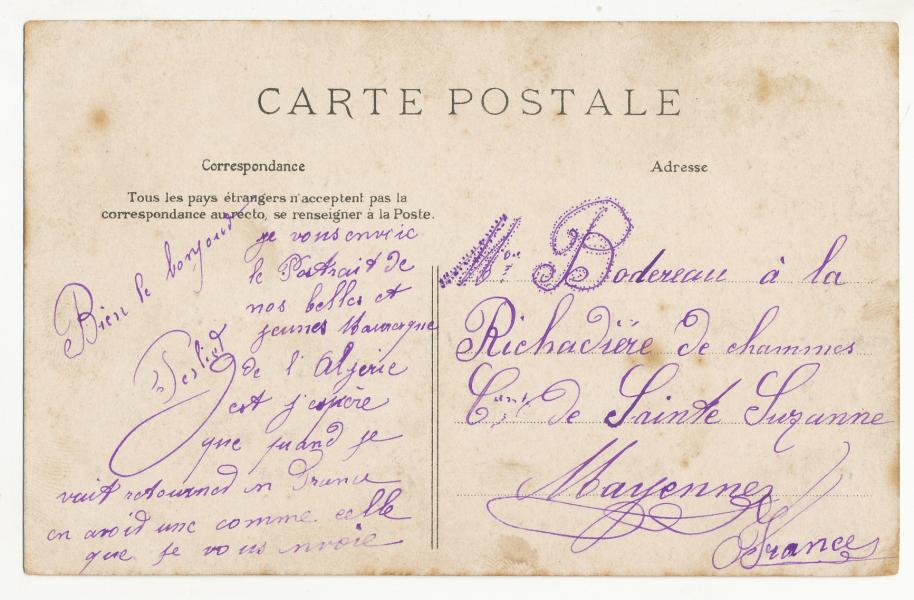 CARTE POSTALE
Correspondance
Adresse
Tous les pays étrangers n'acceptent pas la
correspondance au recto, se renseigner à la Poste.
Bien le bonjour
je vous envoie
le Portrait de
nos belles et
jeunes Mauresque
de l'Algerie
et j'espère
que quand je
vait retourned en France
en avoid une comme celle
que je vous nvoie
Bodereau à la
Richadière de chammes
Cant de Sainte Suzanne
Mayenne
France